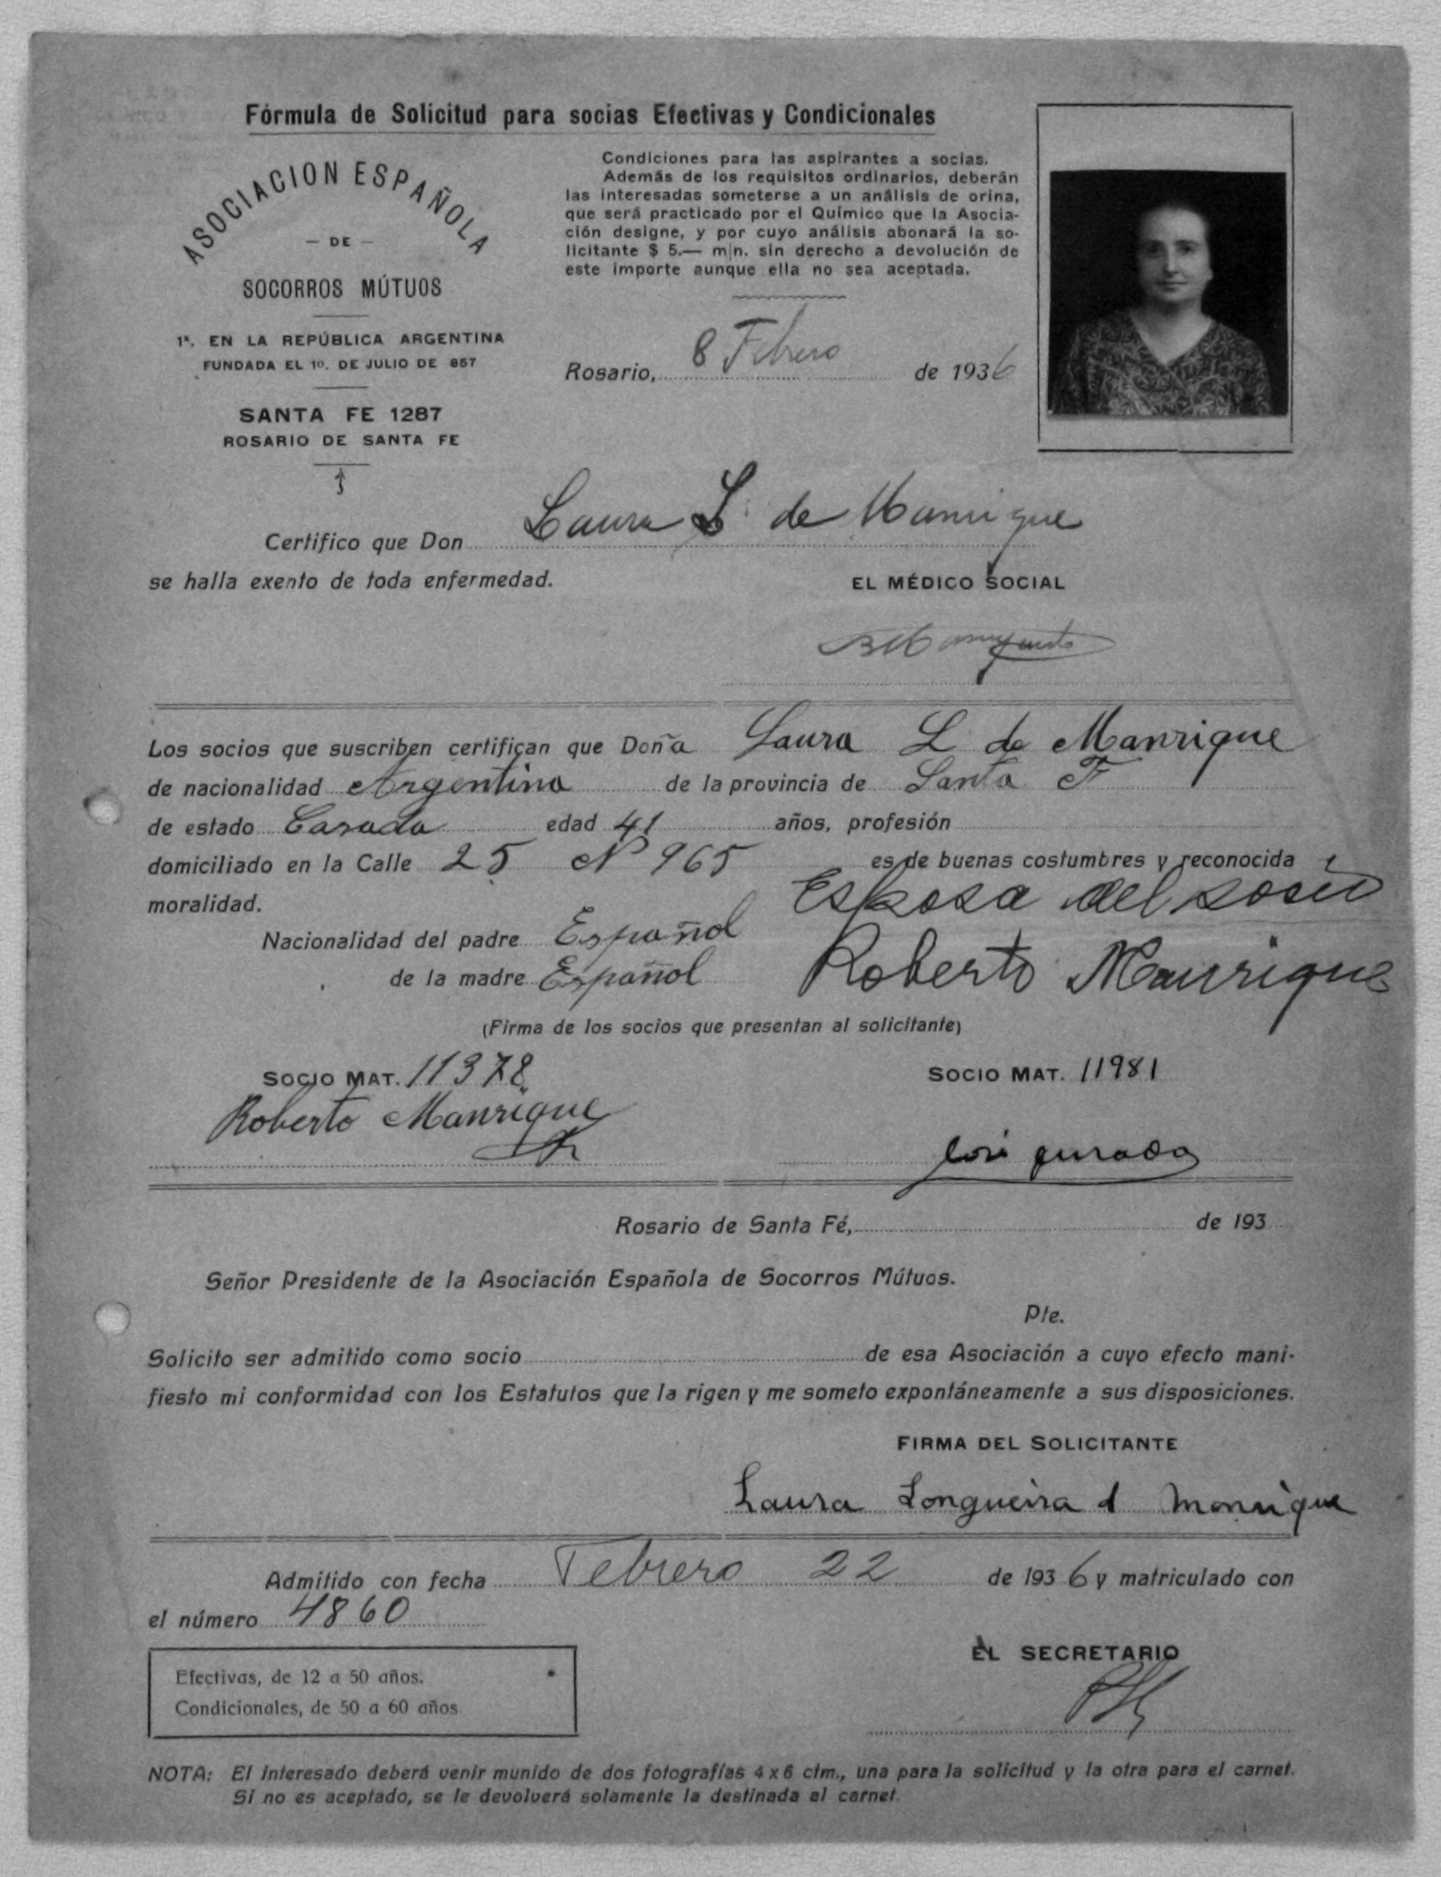 Fórmula de Solicitud para socias Efectivas y Condicionales
ASOCIACION ESPAÑOLA
— DE —
SOCORROS MÚTUOS
1ª. EN LA REPÚBLICA ARGENTINA
FUNDADA EL 10. DE JULIO DE 857
SANTA FE 1287
ROSARIO DE SANTA FE
Condiciones para las aspirantes a socias.
Además de los requisitos ordinarios, deberán
las interesadas someterse a un análisis de orina,
que será practicado por el Químico que la Asocia-
ción designe, y por cuyo análisis abonará la so-
licitante $ 5.— m|n. sin derecho a devolución de
este importe aunque ella no sea aceptada.
Rosario, 8 Febrero de 1936
Certifico que Don Laura L. de Manrique
se halla exento de toda enfermedad.
EL MÉDICO SOCIAL
Los socios que suscriben certifican que Doña Laura L de Manrique
de nacionalidad Argentina de la provincia de Santa F
de estado Casada edad 41 años, profesión
domiciliado en la Calle 25 N 965 es de buenas costumbres y reconocida
moralidad.
Esposa del socio
Nacionalidad del padre Español
Roberto Manrique
de la madre Español
(Firma de los socios que presentan al solicitante)
SOCIO MAT. 11378
SOCIO MAT. 11981
Roberto Manrique
José Jurado
Rosario de Santa Fé, de 193
Señor Presidente de la Asociación Española de Socorros Mútuos.
Pte.
Solicito ser admitido como socio de esa Asociación a cuyo efecto mani-
fiesto mi conformidad con los Estatutos que la rigen y me someto expontáneamente a sus disposiciones.
FIRMA DEL SOLICITANTE
Laura Longueira d Manrique
Admitido con fecha Febrero 22 de 1936 y matriculado con
el número 4860
EL SECRETARIO
Efectivas, de 12 a 50 años.
Condicionales, de 50 a 60 años
NOTA: El interesado deberá venir munido de dos fotografías 4 x 6 ctm., una para la solicitud y la otra para el carnet.
Si no es aceptado, se le devolverá solamente la destinada al carnet.